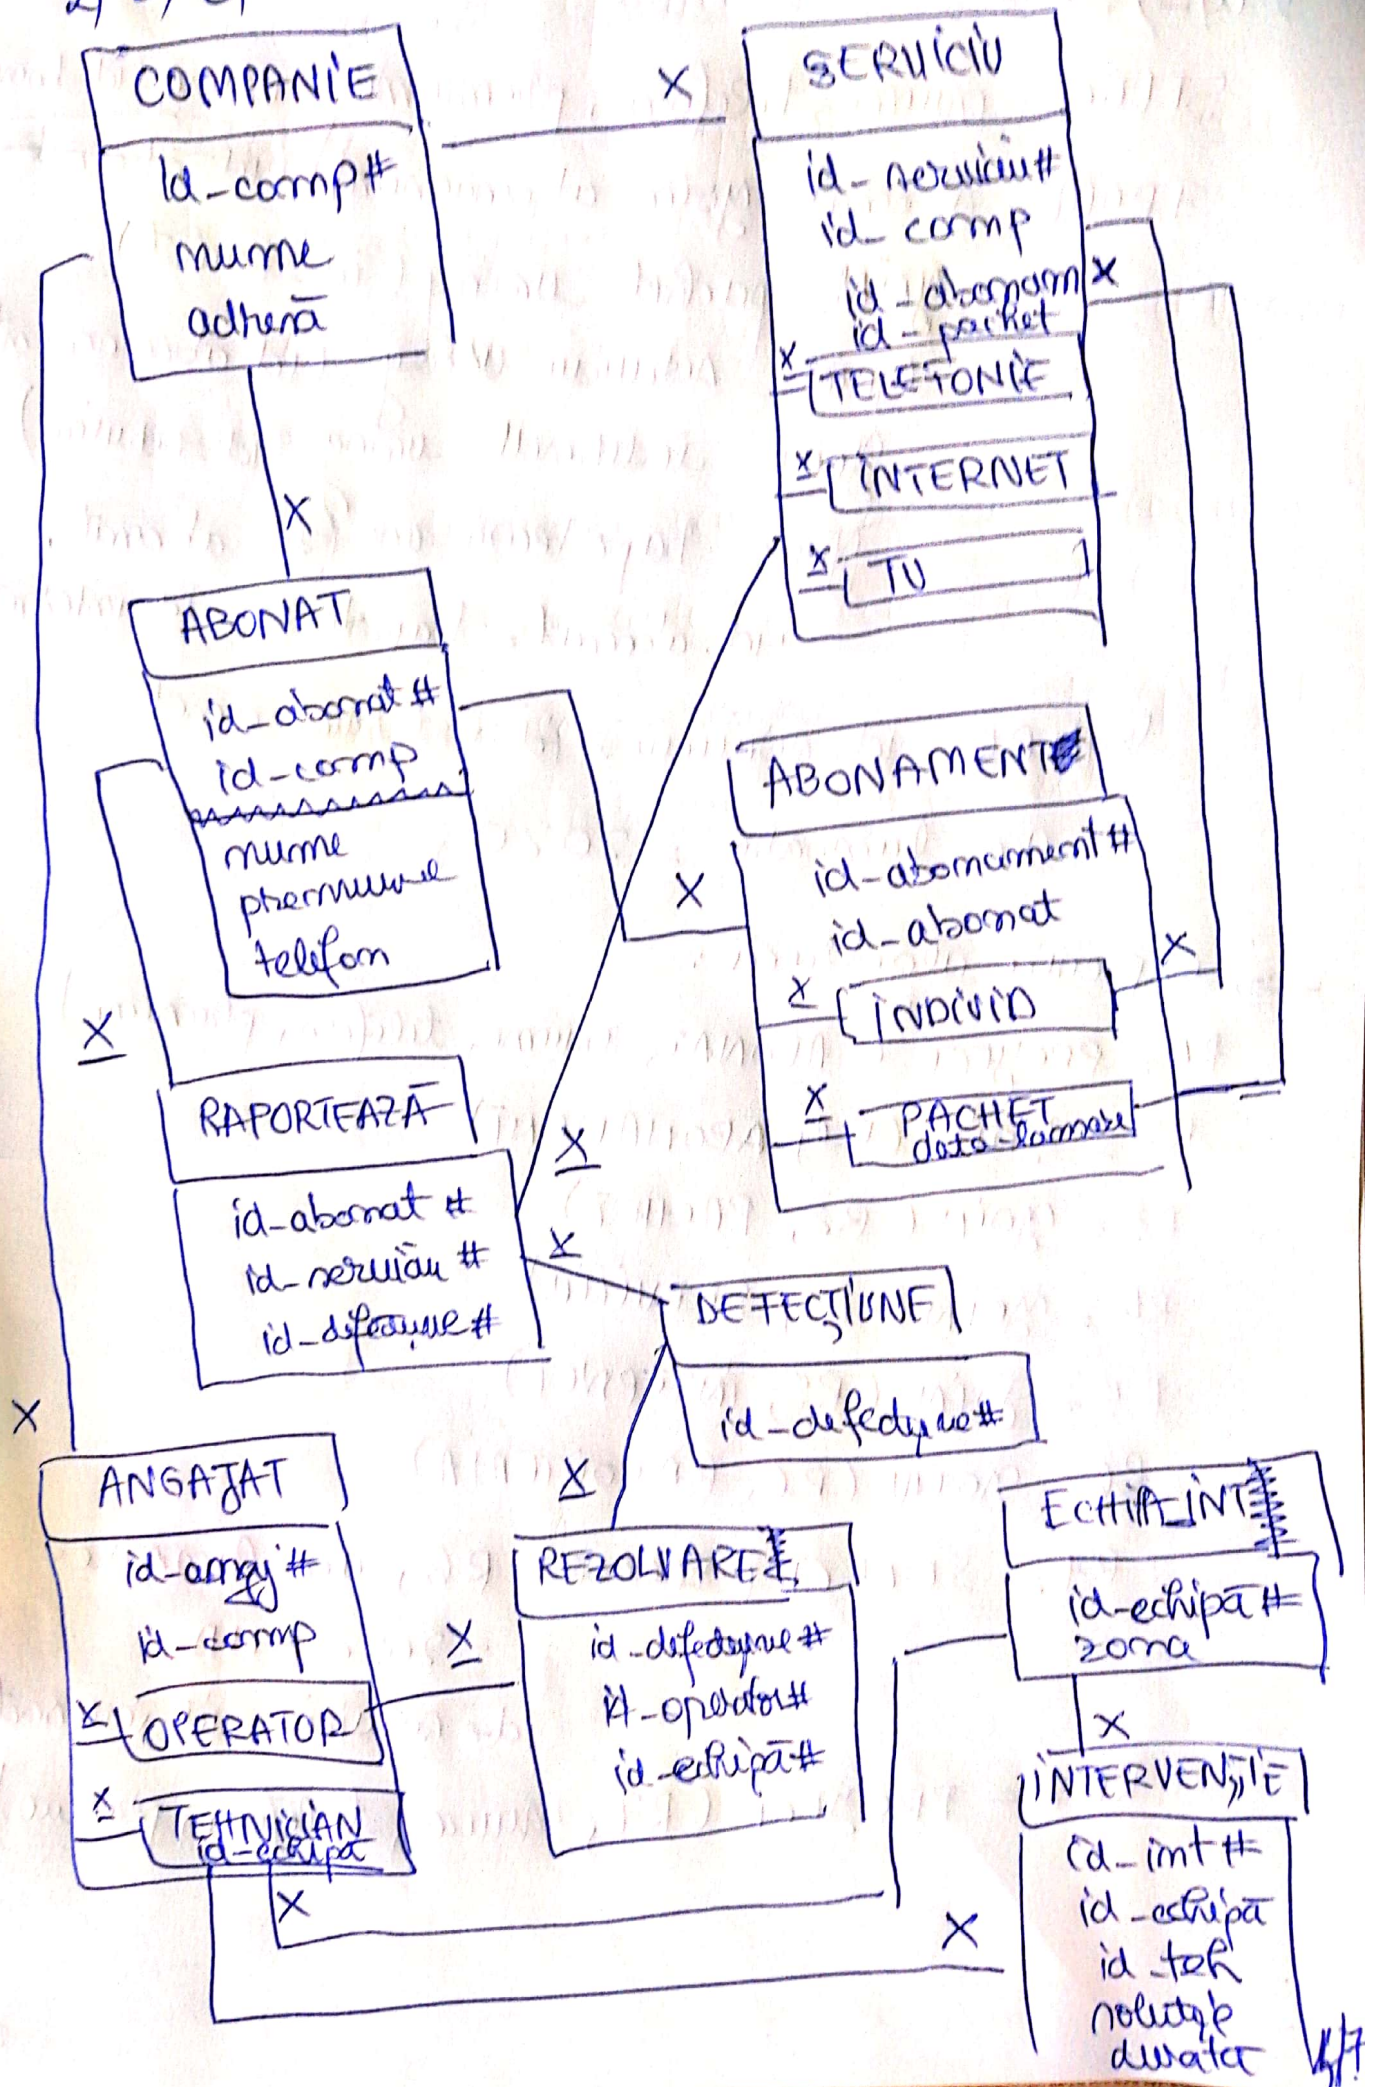 COMPANIE
id_comp#
nume
adresă
X
SERVICIU
id_serviciu#
id_comp
id_abonam
id_pachet
X
X TELEFONIE
X INTERNET
X TV
X
ABONAT
id_abonat#
id_comp
nume
prenume
telefon
X
ABONAMENT
id_abonament#
id_abonat
X INDIVID
X
X PACHET
data_lansare
X
RAPORTEAZĂ
id_abonat #
id_serviciu #
id_defecțiune #
X
X
DEFECȚIUNE
id_defecțiune#
X
ANGAJAT
id_angaj #
id_comp
X OPERATOR
X TEHNICIAN
id_echipă
X
X
X
REZOLVARE
id_defecțiune #
id_operator#
id_echipă#
ECHIPA_INT
id_echipă #
zona
X
INTERVENȚIE
id_int #
id_echipă
id_teh
soluție
durata
X